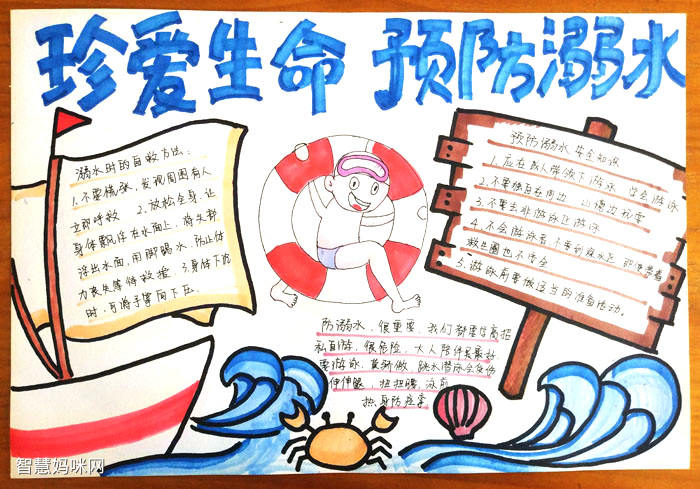 珍爱生命 预防溺水
溺水时的自救方法:
1.不要慌张,发现周围有人
立即呼救 2.放松全身,让
身体飘浮在水面上,将头部
浮出水面,用脚踢水,防止体
力丧失等待救援 3.身体下沉
时,可将手掌向下压
预防溺水安全知识
1.应在成人带领下游泳 学会游泳
2.不要独自在河边 山塘边玩耍
3.不要去非游泳区游泳
4.不会游泳者不要到深水区 即使带着
救生圈也不安全
5.游泳前要做适当的准备活动。
防溺水,很重要,我们都要
私自游,很危险,大人陪伴
要游泳,跳水潜泳会受伤
伸伸腿,扭扭腰,泳前
热身防痉挛
智慧妈咪网